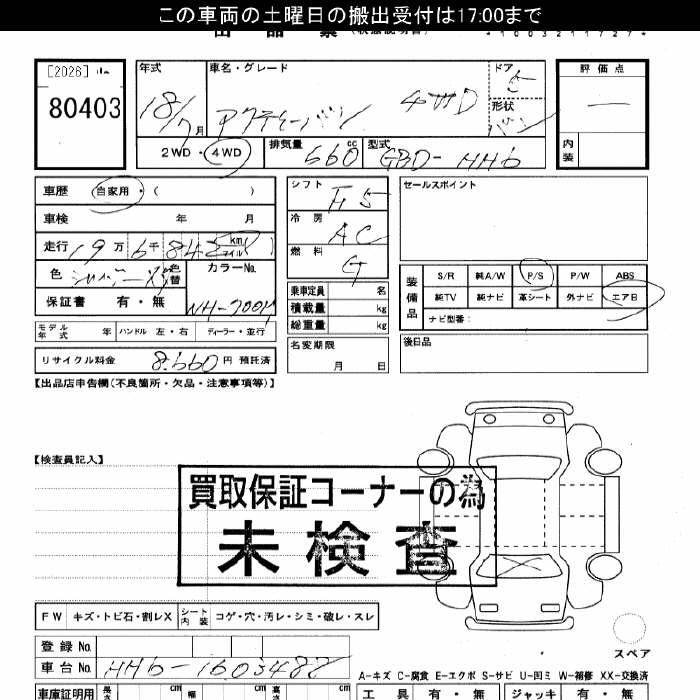 この車両の土曜日の搬出受付は17:00まで
[2026]
80403
年式
18/7月
車名・グレード
アクティーバン 4WD
ドア
5
形状
バン
2WD・4WD
排気量
660cc
型式
GBD-HH6
評価点
内装
車歴 自家用・( )
車検 年 月
走行 19万6千842km マイル
色 シルバーM 色替
カラーNo.
NH-700M
保証書 有・無
モデル年式 年 ハンドル 左・右 ディーラー・並行
リサイクル料金 8,660円 預託済
シフト F5
冷房 AC
燃料 G
乗車定員 名
積載量 kg
総重量 kg
名変期限
月 日
セールスポイント
装備品
S/R 純A/W P/S P/W ABS
純TV 純ナビ 革シート 外ナビ エアB
ナビ型番:
後日品
【出品店申告欄(不良箇所・欠品・注意事項等)】
【検査員記入】
買取保証コーナーの為
未検査
スペア
FW キズ・トビ石・割レX シート内装 コゲ・穴・汚レ・シミ・破レ・スレ
登録No.
車台No. HH6-1603487
A-キズ C-腐食 E-エクボ S-サビ U-凹ミ W-補修 XX-交換済
車庫証明用 長さ cm 幅 cm 高さ cm
工具 有・無 ジャッキ 有・無